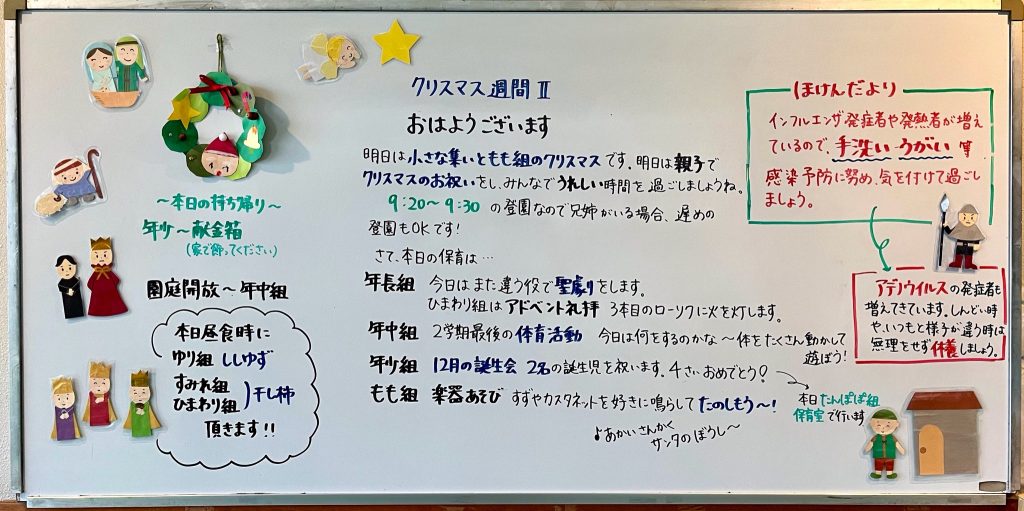 クリスマス週間 Ⅱ
おはようございます
明日は小さな集いともも組のクリスマスです。明日は親子で
クリスマスのお祝いをし、みんなでうれしい時間を過ごしましょうね。
9:20〜9:30 の登園なので兄姉がいる場合、遅めの
登園もOKです!
さて、本日の保育は…
年長組 今日はまた違う役で聖劇りをします。
ひまわり組はアドベント礼拝 3本目のローソクに火を灯します。
年中組 2学期最後の体育活動 今日は何をするのかな〜体をたくさん動かして
遊ぼう!
年少組 12月の誕生会 2名の誕生児を祝います。4さいおめでとう♡
本日たんぽぽ組
保育室で行います
もも組 楽器あそび すずやカスタネットを好きに鳴らしてたのしもう〜!
♪あかいさんかく
サンタのぼうし〜
〜本日の持ち帰り〜
年少〜献金箱
(家で飾ってください)
園庭開放〜年中組
本日昼食時に
ゆり組 ししゆず
すみれ組
ひまわり組 干し柿
頂きます!!
ほけんだより
インフルエンザ発症者や発熱者が増え
ているので、手洗い うがい 等
感染予防に努め、気を付けて過ごし
ましょう。
アデノウイルスの発症者も
増えてきています。しんどい時
や、いつもと様子が違う時は
無理をせず休養しましょう。